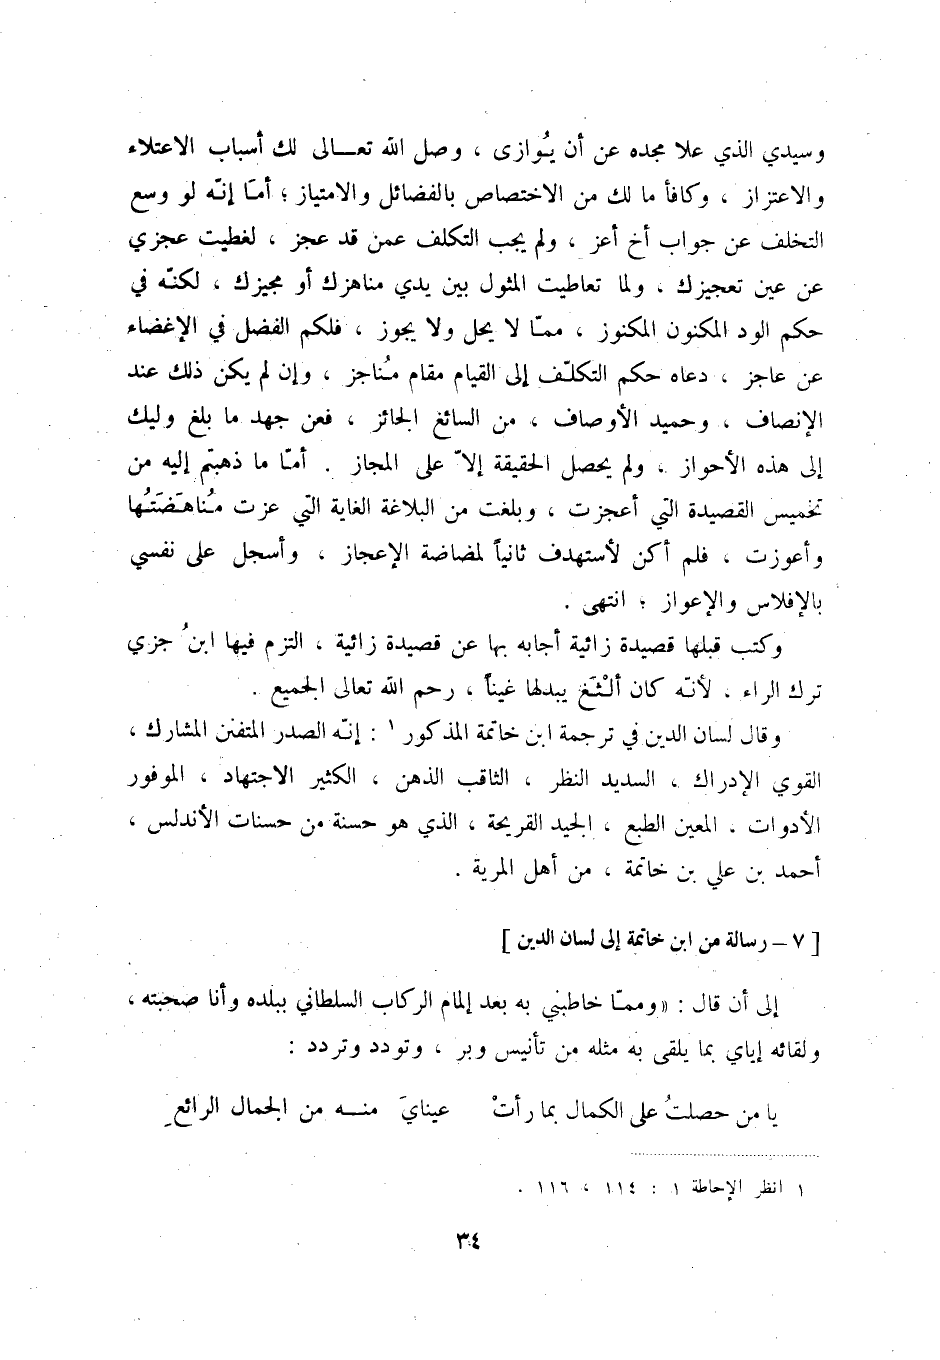 وسيدي الذي علا مجده عن أن يُوازى ، وصل الله تعــالى لك أسباب الاعتلاء
والاعتزاز ، وكافأ ما لك من الاختصاص بالفضائل والامتياز ؛ أمّا إنّه لو وسع
التخلف عن جواب أخ أعز ، ولم يجب التكلف عمن قد عجز ، لغطيت عجزي
عن عين تعجيزك ، ولما تعاطيت المثول بين يدي مناهزك أو مجيزك ، لكنّه في
حكم الود المكنون المكنوز ، ممّا لا يحل ولا يجوز ، فلكم الفضل في الإغضاء
عن عاجز ، دعاه حكم التكلّف إلى القيام مقام مُناجز ، وإن لم يكن ذلك عند
الإنصاف ، وحميد الأوصاف ، من السائغ الجائز ، فعن جهد ما بلغ وليك
إلى هذه الأحواز ، ولم يحصل الحقيقة إلاّ على المجاز . أمّا ما ذهبتم إليه من
تخميس القصيدة التي أعجزت ، وبلغت من البلاغة الغاية التي عزت مُناهَضَتُها
وأعوزت ، فلم أكن لأستهدف ثانياً لمضاضة الإعجاز ، وأسجل على نفسي
بالإفلاس والإعواز ؛ انتهى .
وكتب قبلها قصيدة زائية أجابه بها عن قصيدة زائية ، التزم فيها ابنُ جزي
ترك الراء ، لأنّه كان ألْثَغ يبدلها غيناً ، رحم الله تعالى الجميع .
وقال لسان الدين في ترجمة ابن خاتمة المذكور ١ : إنّه الصدر المتفنن المشارك ،
القوي الإدراك ، السديد النظر ، الثاقب الذهن ، الكثير الاجتهاد ، الموفور
الأدوات ، المعين الطبع ، الجيد القريحة ، الذي هو حسنة من حسنات الأندلس ،
أحمد بن علي بن خاتمة ، من أهل المرية .
[ ٧ – رسالة من ابن خاتمة إلى لسان الدين ]
إلى أن قال : « وممّا خاطبني به بعد إلمام الركاب السلطاني ببلده وأنا صحبته ،
ولقائه إياي بما يلقى به مثله من تأنيس وبر ، وتودد وتردد :
يا من حصلتُ على الكمال بما رأتْ عينايَ منــه من الجمال الرائعِ
١ انظر الإحاطة ١ : ١١٤ ، ١١٦ .
٣٤